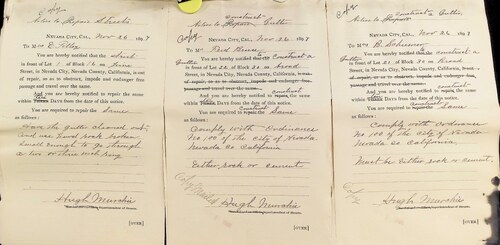 Copy
Notice to Repair Streets
NEVADA CITY, CAL., Nov 26 1897
To Mr
You are hereby notified that the street
in front of Lot 1 of Block 16 on
Street, in Nevada City, Nevada County, California, is out
of repair, or so to obstruct, impede and endanger free
passage and travel over the same.
And you are hereby notified to repair the same
within DAYS from the date of this notice.
You are required to repair the same
as follows:
Have the gutter cleaned out,
and use good rock broken
small enough to go through
a two or three inch ring
Hugh Murchie
[OVER]
Copy
construct
Notice to Repair Gutter
NEVADA CITY, CAL., Nov 26 1897
To
You are hereby notified to construct a
Gutter
in front of Lot of Block on Broad
Street, in Nevada City, Nevada County, California, is out
of repair, or so to obstruct, impede and endanger free
passage and travel over the same.
construct
And you are hereby notified to repair the same
within DAYS from the date of this notice.
construct
You are required to repair the same
as follows:
Comply with Ordinance
No 100 of the city of Nevada
Nevada Co California.
Either rock or cement
Copy Mailed
Hugh Murchie
[OVER]
Copy
construct a
Notice to Repair Gutter
NEVADA CITY, CAL., Nov 26 1897
To Mr B.
You are hereby notified that construct a
Gutter
in front of Lot of Block on Broad
Street, in Nevada City, Nevada County, California, is out
of repair, or so to obstruct, impede and endanger free
passage and travel over the same.
construct
And you are hereby notified to repair the same
within DAYS from the date of this notice.
construct
You are required to repair the same
as follows:
Comply with Ordinance
No 100 of the city of Nevada
Nevada Co California.
Must be either rock or cement
Hugh Murchie
[OVER]